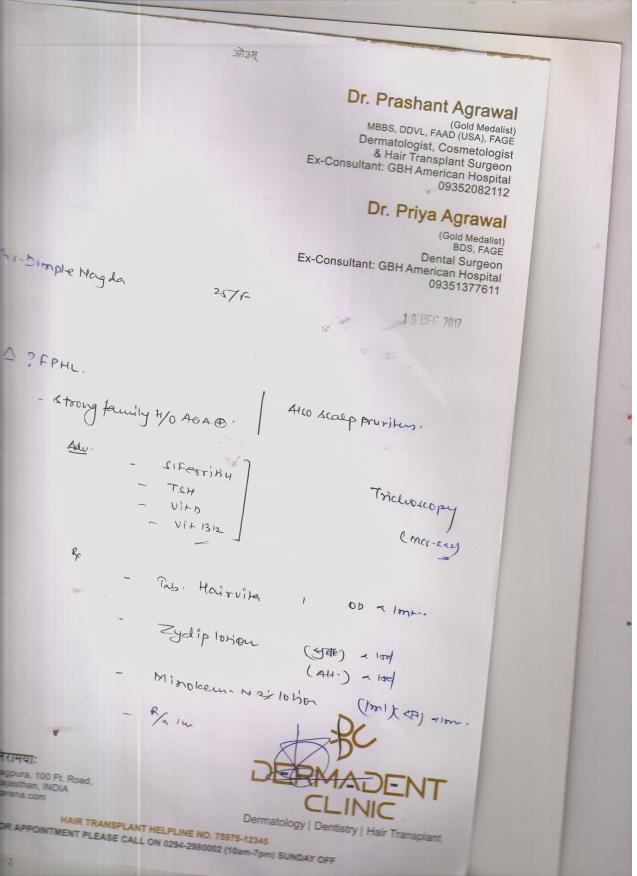 ओउम्
Dr. Prashant Agrawal
(Gold Medalist)
MBBS, DDVL, FAAD (USA), FAGE
Dermatologist, Cosmetologist
& Hair Transplant Surgeon
Ex-Consultant: GBH American Hospital
09352082112
Dr. Priya Agrawal
(Gold Medalist)
BDS, FAGE
Dental Surgeon
Ex-Consultant: GBH American Hospital
09351377611
Dimple Nagda 25/F
19 DEC 2017
Δ ? FPHL.
- Strong family H/O AGA ⊕. Also scalp pruritus.
Adv.
- S. Ferritin
- TSH
- Vit D
- Vit B12
Trichoscopy
Rx
- Tab. Hairvita , OD x 1m
- Zydip lotion (सुबह)
- Minokem-N 2% lotion (1ml)
- R/a 1m
DC
DERMADENT
CLINIC
Dermatology | Dentistry | Hair Transplant
निरामयाः
agpura, 100 Ft. Road,
ajasthan, INDIA
arena.com
HAIR TRANSPLANT HELPLINE NO. 75975-12345
OR APPOINTMENT PLEASE CALL ON 0294-2980002 (10am-7pm) SUNDAY OFF